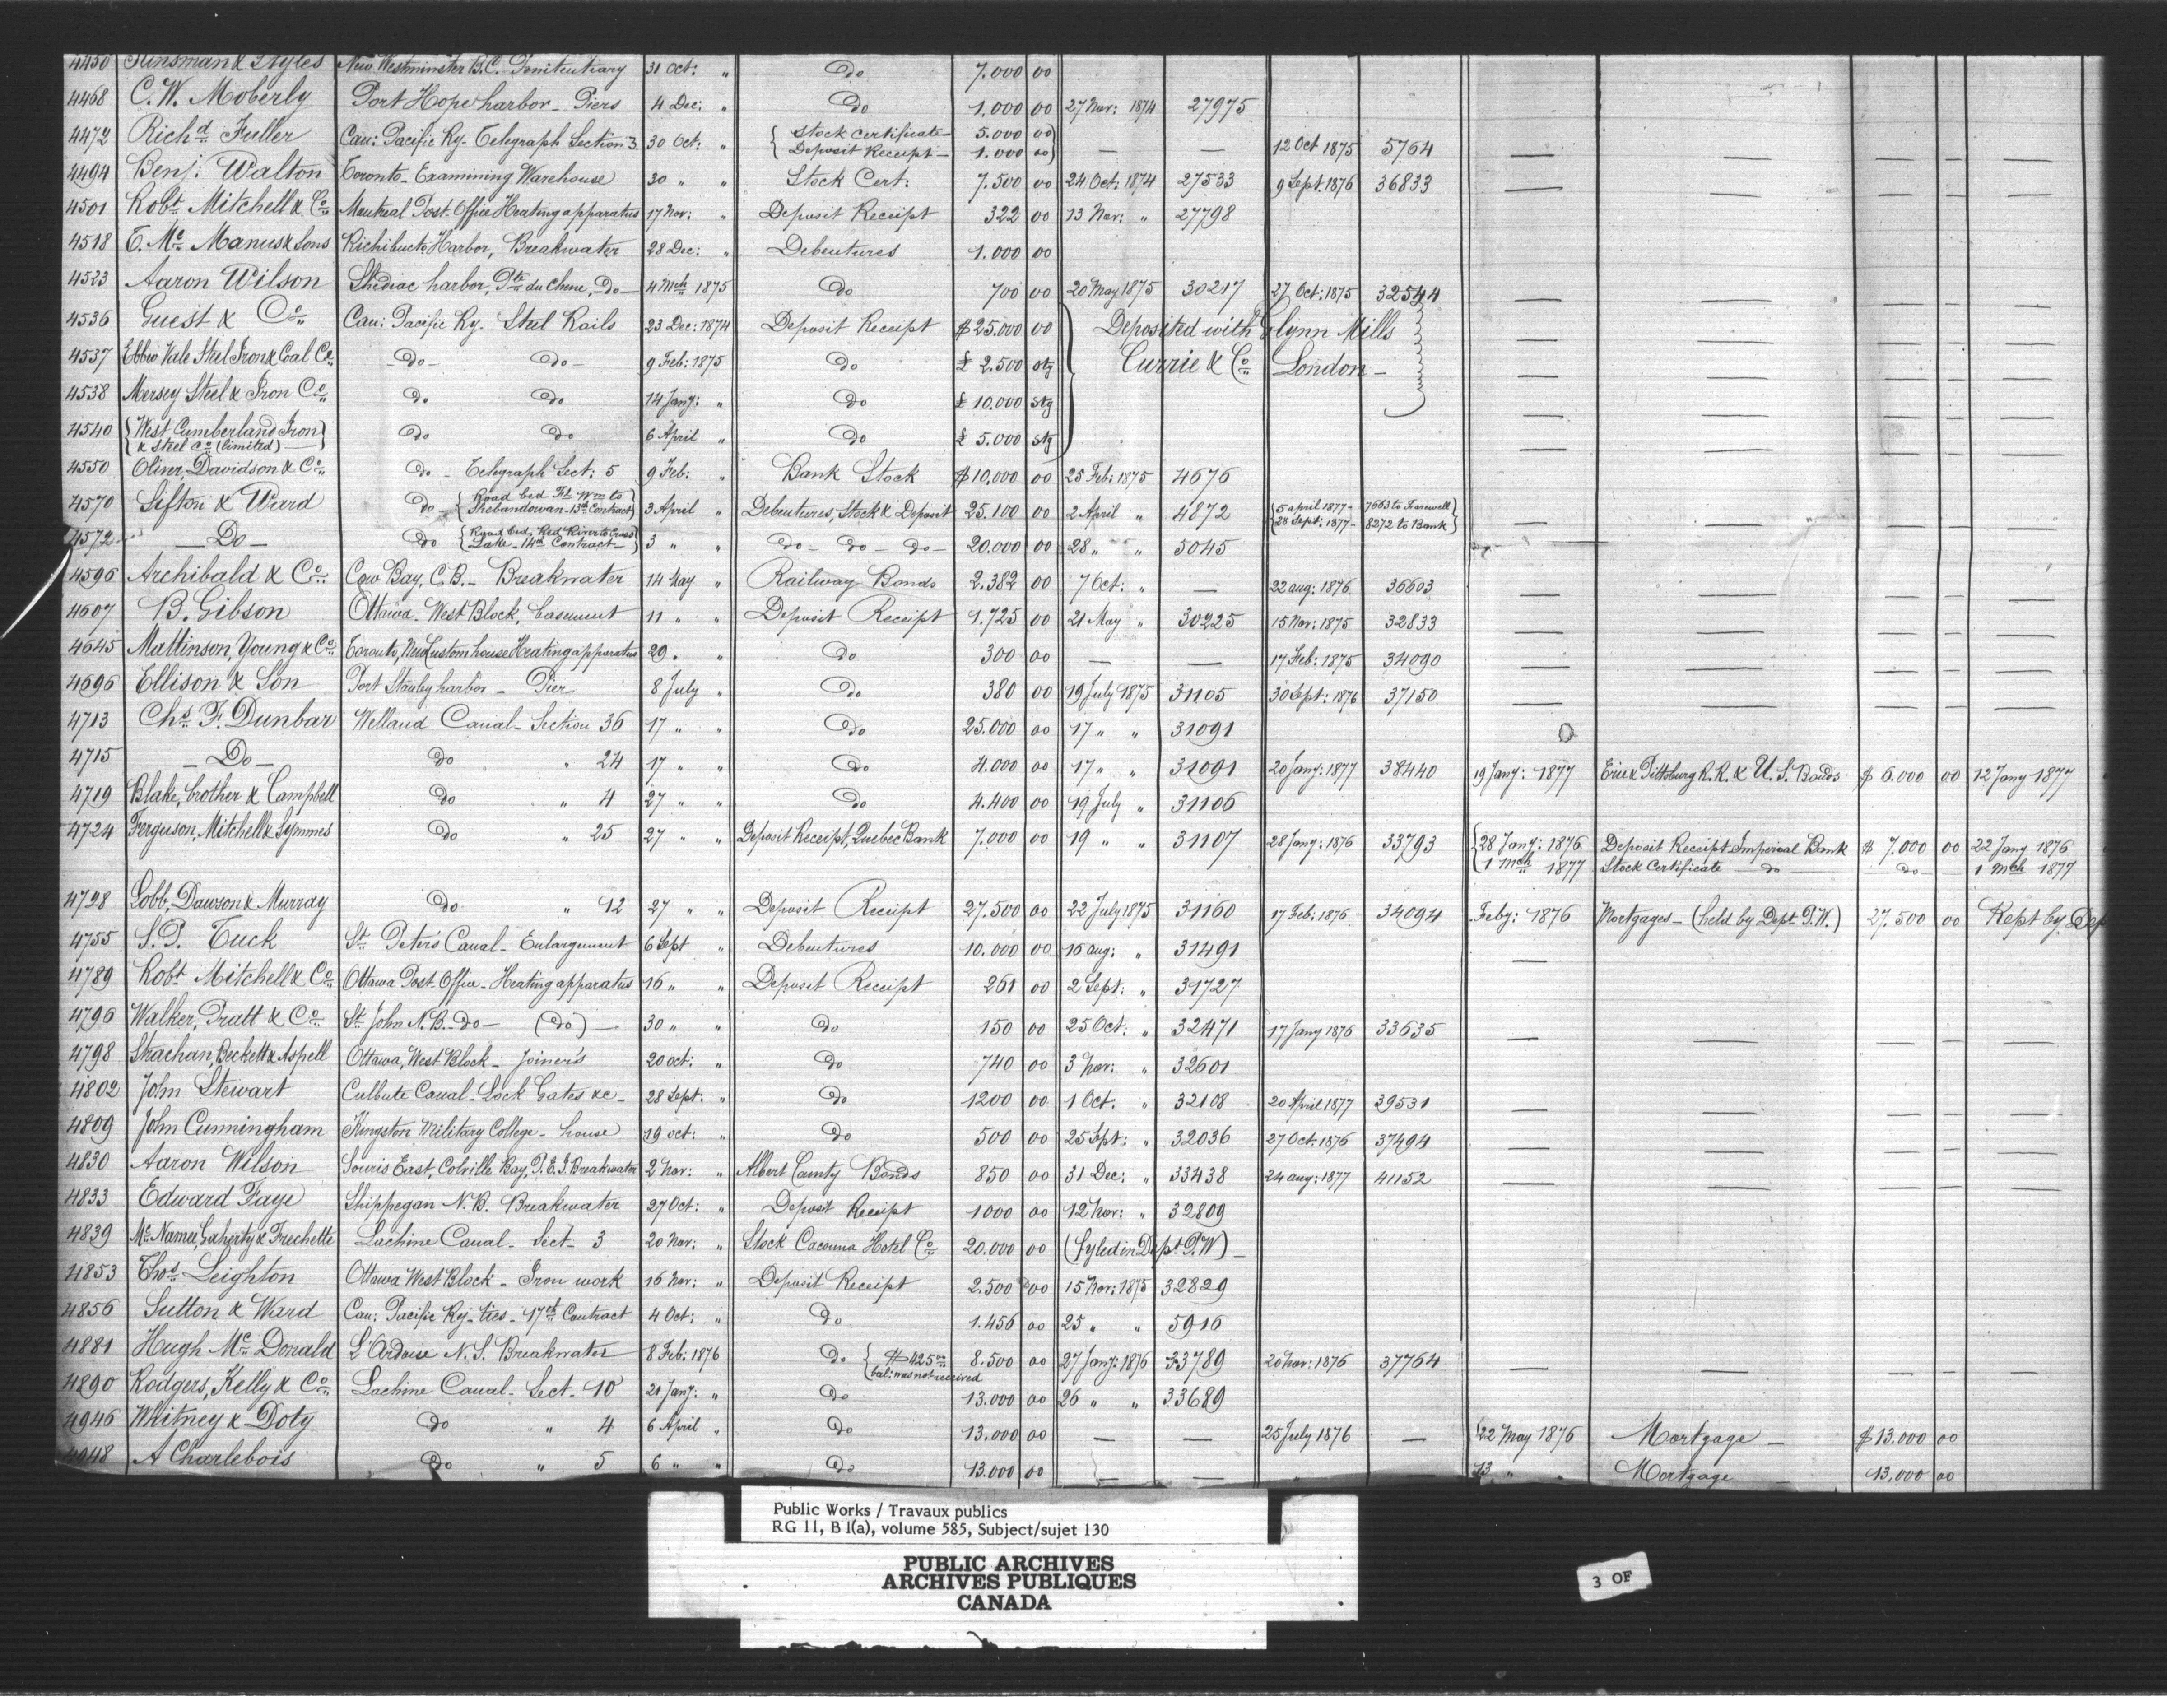 4450 Kinsman & Styles New Westminster B.C. Penitentiary 31 Oct: " Do 7.000 00
4468 C. W. Moberly Port Hope harbor - Piers 4 Dec: " Do 1.000 00 27 Nov: 1874 27975
4472 Richd Fuller Can: Pacific Ry. Telegraph Section 3. 30 Oct: " { Stock Certificate — 5.000 00 }
{ Deposit Receipt — 1.000 00 } — — 12 Oct 1875 5764 — — — —
4494 Benj: Walton Toronto - Examining Warehouse 30 " " Stock Cert: 7.500 00 24 Oct: 1874 27533 9 Sept: 1876 36833 — — — —
4501 Robt Mitchell & Co Montreal Post Office Heating apparatus 17 Nov: " Deposit Receipt 322 00 13 Nov: " 27798
4518 T. Mc Manus & Sons Richibucto Harbor, Breakwater 28 Dec: " Debentures 1.000 00
4523 Aaron Wilson Shediac harbor, Pte du Chene, Do — 4 Mch 1875 Do 700 00 20 May 1875 30217 27 Oct: 1875 32544 — — — —
4536 Guest & Co Can: Pacific Ry. Steel Rails 23 Dec: 1874 Deposit Receipt $ 25.000 00 } Deposited with Glynn Mills — — — —
4537 Ebbw Vale Steel Iron & Coal Co Do — Do — 9 Feb: 1875 Do £ 2.500 stg Currie & Co London — — — — —
4538 Mersey Steel & Iron Co Do Do 14 Jany: " Do £ 10.000 stg — — — —
4540 { West Cumberland Iron }
{ & Steel Co (limited) — } Do Do 6 April " Do £ 5.000 stg — — — —
4550 Oliver, Davidson & Co Do - Telegraph Sect: 5 9 Feb: " Bank Stock $ 10,000 00 25 Feb: 1875 4676
4570 Sifton & Ward Do — { Road bed Ft Wm to
Shebandowan - 13th Contract } 3 April " Debentures, Stock & Deposit 25.100 00 2 April " 4872 { 5 april 1877 - 7663 to Farewell }
{ 28 Sept: 1877 - 8272 to Bank } — — — —
4572 — Do — Do { Road bed, Red River to Cross
Lake - 14th Contract — } 3 " " Do — Do — Do — 20.000 00 28 " " 5045
4596 Archibald & Co Cow Bay, C.B. - Breakwater 14 May " Railway Bonds 2.382 00 7 Oct: " — 22 aug: 1876 36603 — — — —
4607 B. Gibson Ottawa. West Block, basement 11 " " Deposit Receipt 1.725 00 21 May " 30225 15 Nov: 1875 32833 — — — —
4645 Mattinson, Young & Co Toronto, New Custom house Heating apparatus 29 " " Do 300 00 — — 17 Feb: 1875 34090 — — — —
4696 Ellison & Son Port Stanley harbor - Pier 8 July " Do 380 00 19 July 1875 31105 30 Sept: 1876 37150 — — — —
4713 Chs F. Dunbar Welland Canal - Section 36 17 " " Do 25.000 00 17 " " 31091
4715 — Do — Do " 24 17 " " Do 4.000 00 17 " " 31091 20 Jany: 1877 38440 19 Jany: 1877 Erie & Pittsburg R.R. & U.S. Bonds $ 6.000 00 12 Jany 1877
4719 Blake, brother & Campbell Do " 4 27 " " Do 4.400 00 19 July " 31106
4724 Ferguson, Mitchell & Symmes Do " 25 27 " " Deposit Receipt, Quebec Bank 7.000 00 19 " " 31107 28 Jany: 1876 33793 { 28 Jany: 1876 Deposit Receipt Imperial Bank $ 7.000 00 22 Jany 1876
{ 1 Mch 1877 Stock Certificate — do — — do — — 1 Mch 1877
4728 Lobb, Dawson & Murray Do " 12 27 " " Deposit Receipt 27.500 00 22 July 1875 31160 17 Feb: 1876 34094 Feby: 1876 Mortgages - (held by Dept P.W.) 27.500 00 Kept by Dep
4755 S. P. Tuck St Peter's Canal - Enlargement 6 Sept " Debentures 10.000 00 16 aug: " 31491 —
4789 Robt Mitchell & Co Ottawa Post Office - Heating apparatus 16 " " Deposit Receipt 261 00 2 Sept: " 31727
4796 Walker, Pratt & Co St John N.B. - do — (Do) — 30 " " Do 150 00 25 Oct: " 32471 17 Jany 1876 33635 — — — —
4798 Strachan, Beckett & Aspell Ottawa, West Block - Joiner's 20 oct: " Do 740 00 3 Nov: " 32601
4802 John Stewart Culbute Canal - Lock Gates &c - 28 Sept: " Do 1200 00 1 Oct. " 32108 20 April 1877 39531 — — — —
4809 John Cunningham Kingston Military College - house 19 oct: " Do 500 00 25 Spt: " 32036 27 Oct: 1876 37494 — — — —
4830 Aaron Wilson Souris East, Colville Bay, P.E.I. Breakwater 2 Nov: " Albert County Bonds 850 00 31 Dec: " 33438 24 aug: 1877 41152 — — — —
4833 Edward Faye Shippegan N.B. Breakwater 27 Oct: " Deposit Receipt 1000 00 12 Nov: " 32809
4839 Mc Namee, Gaherty & Frechette Lachine Canal - Sect - 3 20 Nov: " Stock Cacouna Hotel Co 20.000 00 (fyled in Dept P.W) —
4853 Thos Leighton Ottawa West Block - Iron work 16 Nov: " Deposit Receipt 2.500 00 15 Nov: 1875 32829
4856 Sutton & Ward Can: Pacific Ry - ties - 17th Contract 4 Oct: " Do 1.456 00 25 " " 5916
4881 Hugh Mc Donald L'Ardoise N.S. Breakwater 8 Feb: 1876 Do { $ 425 00
bal: was not received 8.500 00 27 Jany: 1876 33789 20 Nov: 1876 37764 — — — —
4890 Rodgers, Kelly & Co Lachine Canal - Sect - 10 21 Jany: " Do 13.000 00 26 " " 33689
4946 Whitney & Doty Do " 4 6 April " Do 13.000 00 — — 25 July 1876 — 22 May 1876 Mortgage — $ 13.000 00
4948 A Charlebois Do " 5 6 " " Do 13.000 00 — — " — 13 " " Mortgage — 13,000 00
Public Works / Travaux publics
RG 11, B 1(a), volume 585, Subject/sujet 130
PUBLIC ARCHIVES
ARCHIVES PUBLIQUES
CANADA
3 OF